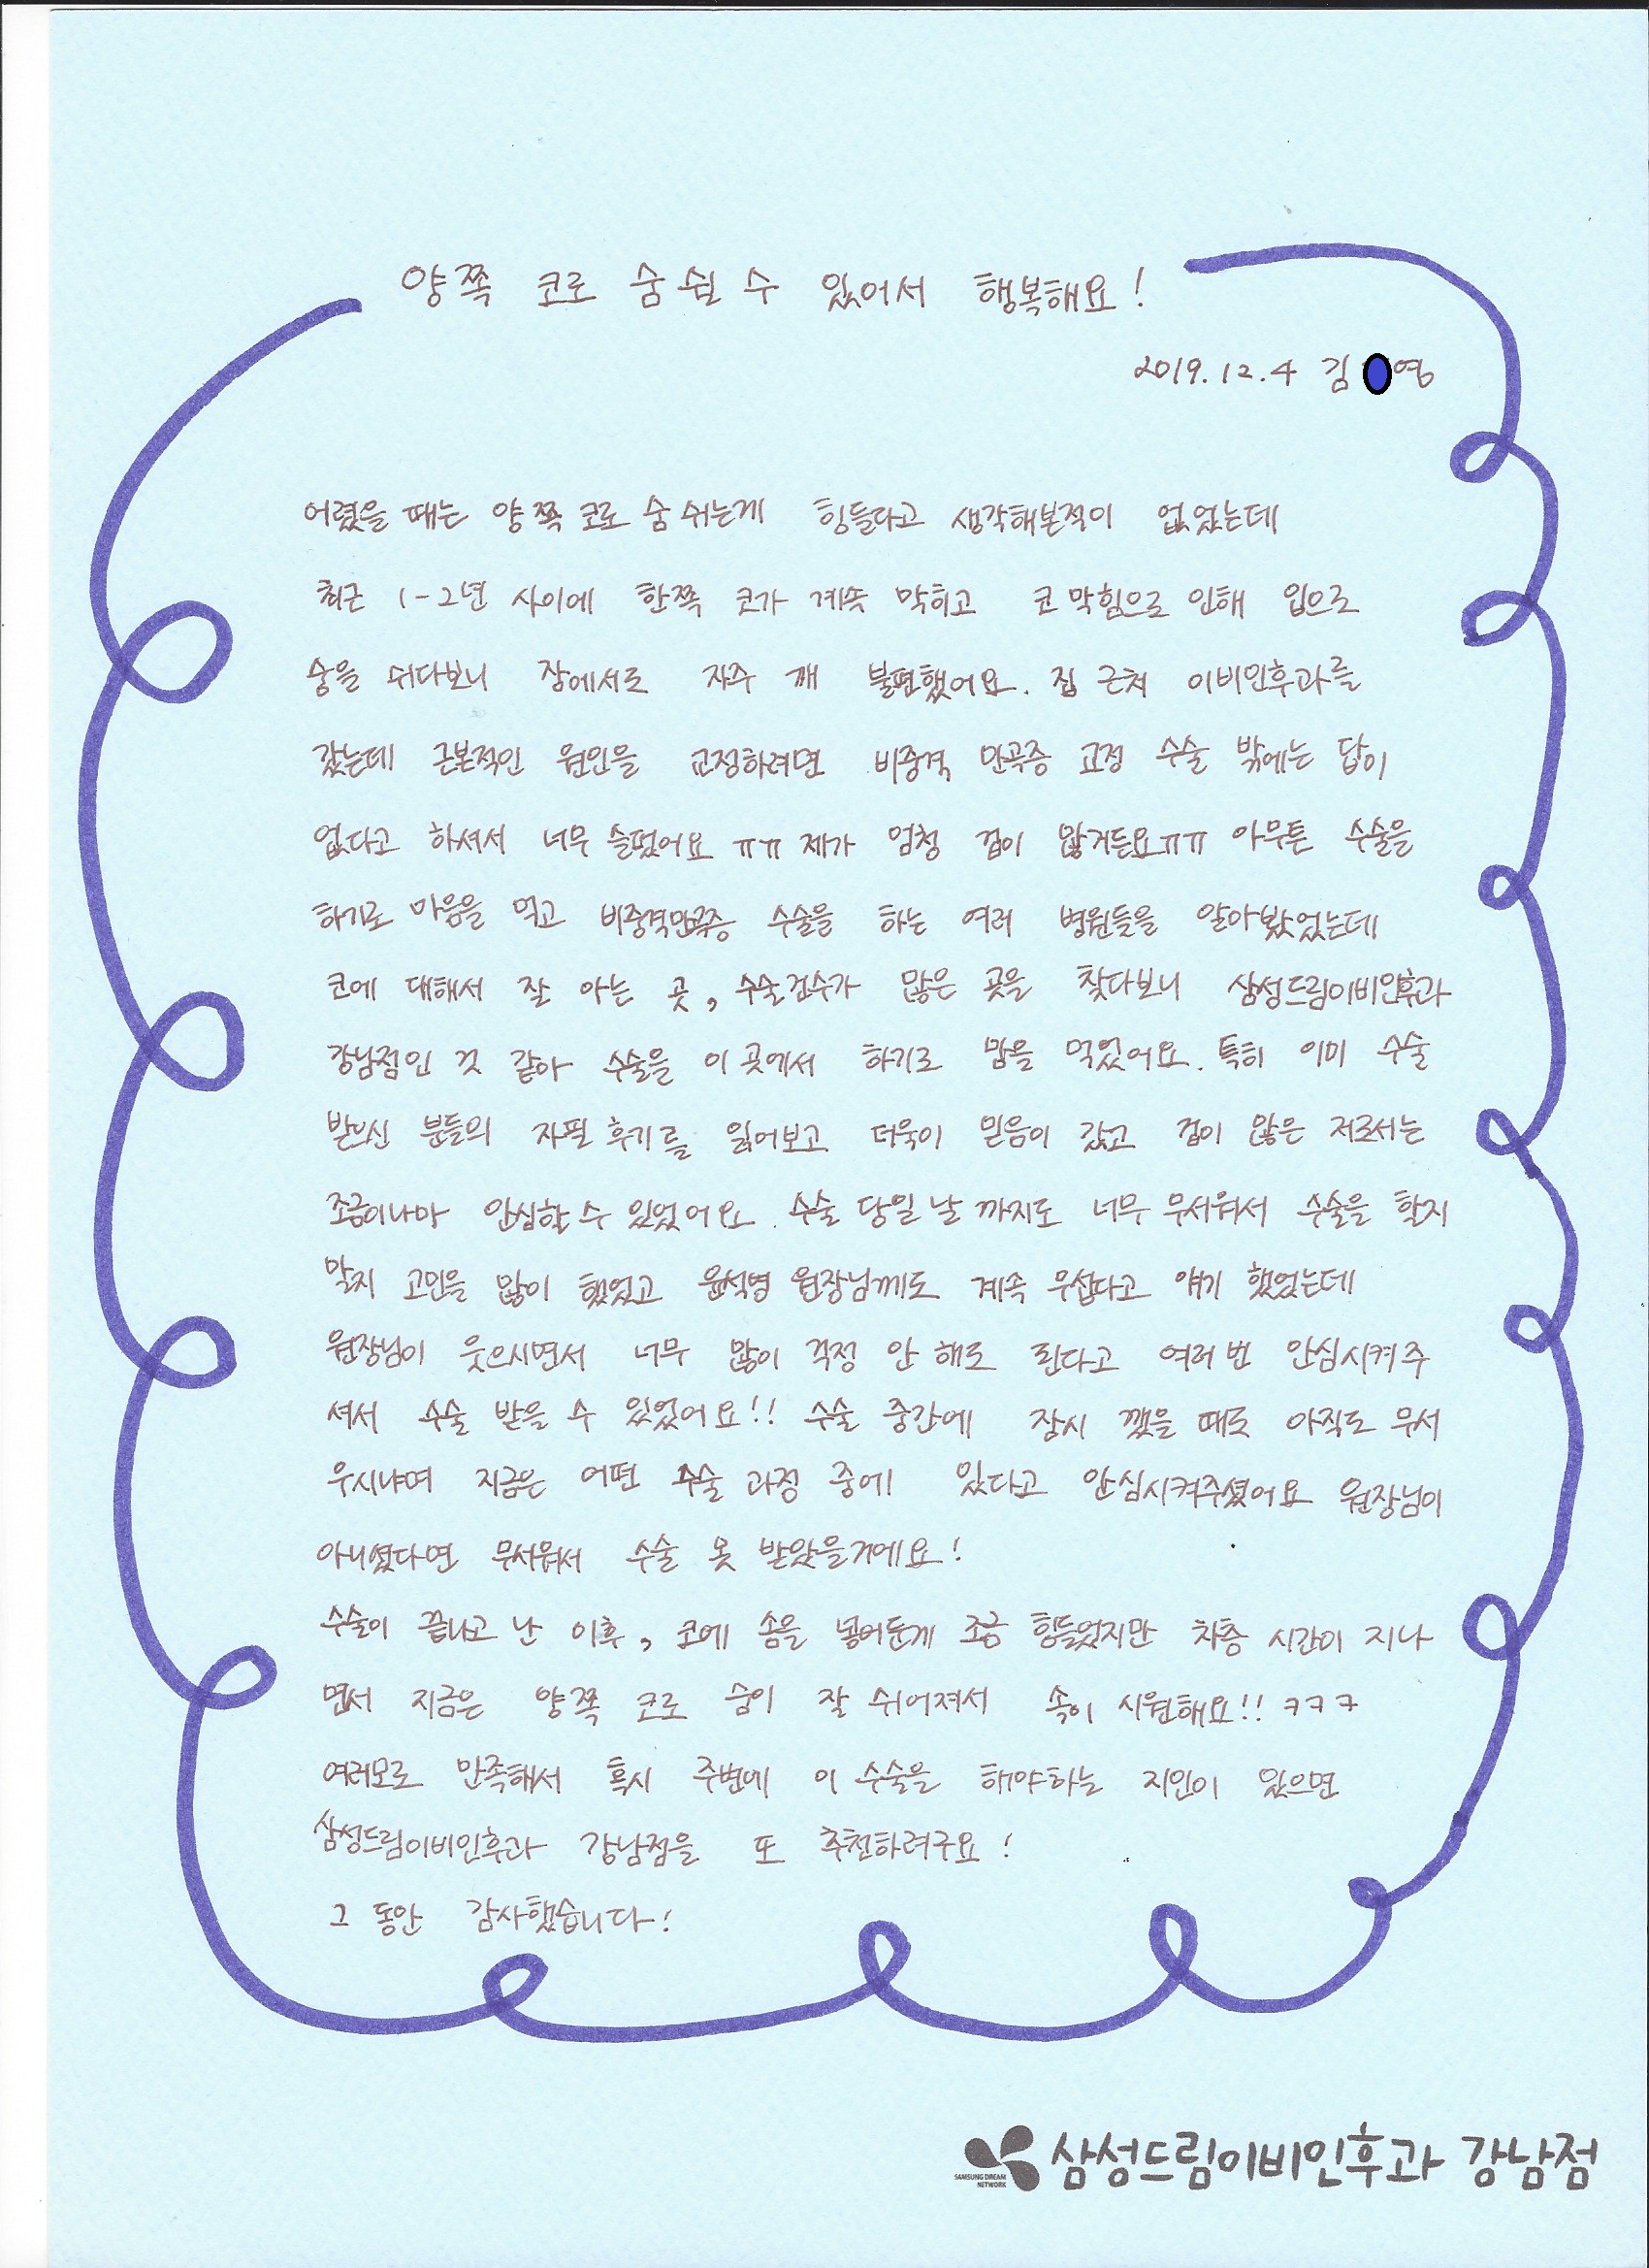 양쪽 코로 숨쉴 수 있어서 행복해요!
2019.12.4 김 영
어렸을 때는 양쪽 코로 숨 쉬는게 힘들다고 생각해본적이 없었는데
최근 1-2년 사이에 한쪽 코가 계속 막히고 코 막힘으로 인해 입으로
숨을 쉬다보니 잠에서도 자주 깨 불편했어요. 집 근처 이비인후과를
갔는데 근본적인 원인을 교정하려면 비중격 만곡증 교정 수술 밖에는 답이
없다고 하셔서 너무 슬펐어요 ㅠㅠ 제가 엄청 겁이 많거든요ㅠㅠ 아무튼 수술을
하기로 마음을 먹고 비중격만곡증 수술을 하는 여러 병원들을 알아봤었는데
코에 대해서 잘 아는 곳, 수술건수가 많은 곳을 찾다보니 삼성드림이비인후과
강남점인 것 같아 수술을 이 곳에서 하기로 맘을 먹었어요. 특히 이미 수술
받으신 분들의 자필 후기를 읽어보고 더욱이 믿음이 갔고 겁이 많은 저로서는
조금이나마 안심할 수 있었어요. 수술 당일 날 까지도 너무 무서워서 수술을 할지
말지 고민을 많이 했었고 윤석병 원장님께도 계속 무섭다고 얘기 했었는데
원장님이 웃으시면서 너무 많이 걱정 안 해도 된다고 여러 번 안심시켜주
셔서 수술 받을 수 있었어요!! 수술 중간에 잠시 깼을 때도 아직도 무서
우시냐며 지금은 어떤 수술 과정 중에 있다고 안심시켜주셨어요 원장님이
아니셨다면 무서워서 수술 못 받았을거에요!
수술이 끝나고 난 이후, 코에 솜을 넣어둔게 조금 힘들었지만 차츰 시간이 지나
면서 지금은 양쪽 코로 숨이 잘 쉬어져서 속이 시원해요!! ㅋㅋㅋ
여러모로 만족해서 혹시 주변에 이 수술을 해야하는 지인이 있으면
삼성드림이비인후과 강남점을 또 추천하려구요!
그 동안 감사했습니다!
SAMSUNG DREAM NETWORK 삼성드림이비인후과 강남점